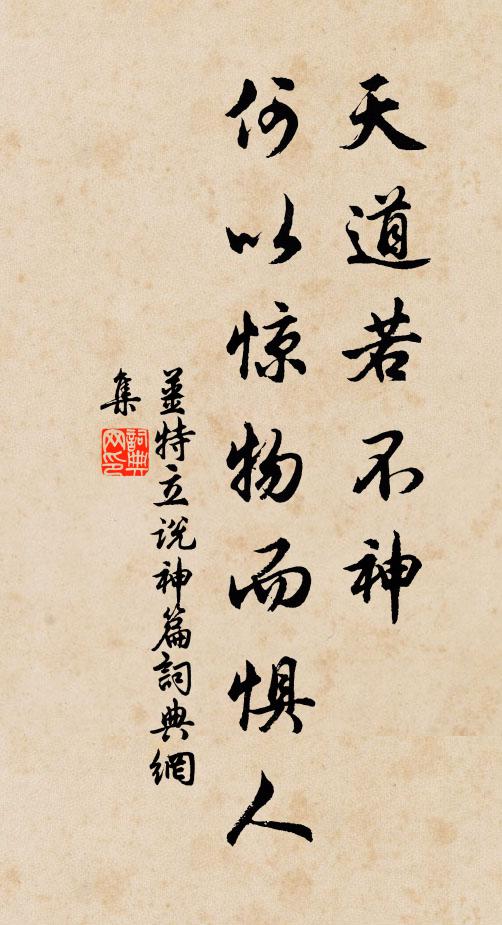 天道若不神
何以惊物而惧人
姜特立说神篇詞典網
集
詞典网印